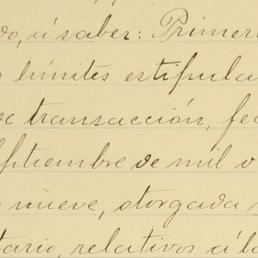 do, á saber: Primer
límites estipula
de transacción, fe
eptiembre de mil o
nueve, otorgada
tario, relativos á l